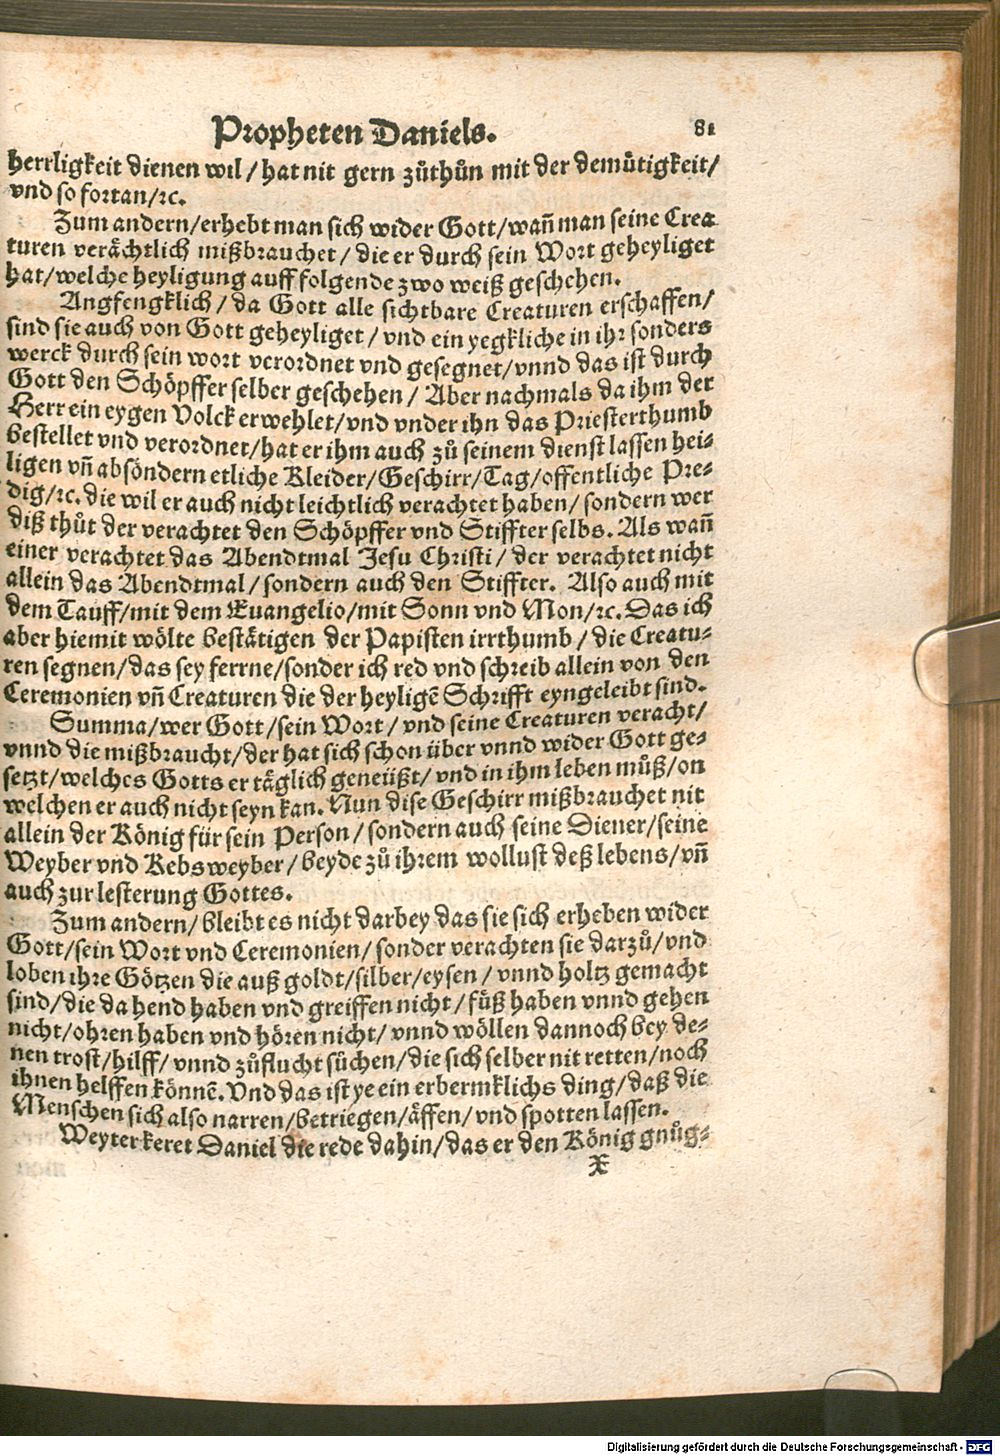 Propheten Daniels. 81
herrligkeit dienen wil / hat nit gern zůthůn mit der demůtigkeit/
vnd so fortan/ꝛc.
Zum andern/erhebt man sich wider Gott/wañ man seine Crea
turen verächtlich mißbrauchet / die er durch sein Wort geheyliget
hat/welche heyligung auff folgende zwo weiß geschehen.
Angfengklich / da Gott alle sichtbare Creaturen erschaffen/
sind sie auch von Gott geheyliget / vnd ein yegkliche in ihr sonders
werck durch sein wort verordnet vnd gesegnet/vnnd das ist durch
Gott den Schöpffer selber geschehen / Aber nachmals da ihm der
Herr ein eygen Volck erwehlet/vnd vnder ihn das Priesterthumb
bestellet vnd verordnet/hat er ihm auch zů seinem dienst lassen hei⸗
ligen vñ absöndern etliche Kleider/Geschirr/Tag/offentliche Pre⸗
dig/ꝛc. die wil er auch nicht leichtlich verachtet haben/sondern wer
diß thůt der verachtet den Schöpffer vnd Stiffter selbs. Als wañ
einer verachtet das Abendtmal Jesu Christi / der verachtet nicht
allein das Abendtmal / sondern auch den Stiffter. Also auch mit
dem Tauff/mit dem Euangelio/mit Sonn vnd Mon/ꝛc. Das ich
aber hiemit wölte bestätigen der Papisten irrthumb / die Creatu⸗
ren segnen/das sey ferrne/sonder ich red vnd schreib allein von den
Ceremonien vñ Creaturen die der heyligẽ Schrifft eyngeleibt sind.
Summa/wer Gott/sein Wort / vnd seine Creaturen veracht/
vnnd die mißbraucht/der hat sich schon über vnnd wider Gott ge⸗
setzt/welches Gotts er täglich geneüßt/ vnd in ihm leben můß/on
welchen er auch nicht seyn kan. Nun dise Geschirr mißbrauchet nit
allein der König für sein Person / sondern auch seine Diener/seine
Weyber vnd Kebsweyber / beyde zů ihrem wollust deß lebens/vñ
auch zur lesterung Gottes.
Zum andern/ bleibt es nicht darbey das sie sich erheben wider
Gott/sein Wort vnd Ceremonien / sonder verachten sie darzů/vnd
loben ihre Götzen die auß goldt/silber/eysen / vnnd holtz gemacht
sind/die da hend haben vnd greiffen nicht / füß haben vnnd gehen
nicht/ohren haben vnd hören nicht/ vnnd wöllen dannoch bey de⸗
nen trost/hilff/ vnnd zůflucht sůchen/die sich selber nit retten/noch
ihnen helffen könnẽ. Vnd das ist ye ein erbermklichs ding/daß die
Menschen sich also narren/betriegen/äffen/vnd spotten lassen.
Weyter keret Daniel die rede dahin/das er den König gnůg⸗
X
Digitalisierung gefördert durch die Deutsche Forschungsgemeinschaft - DFG